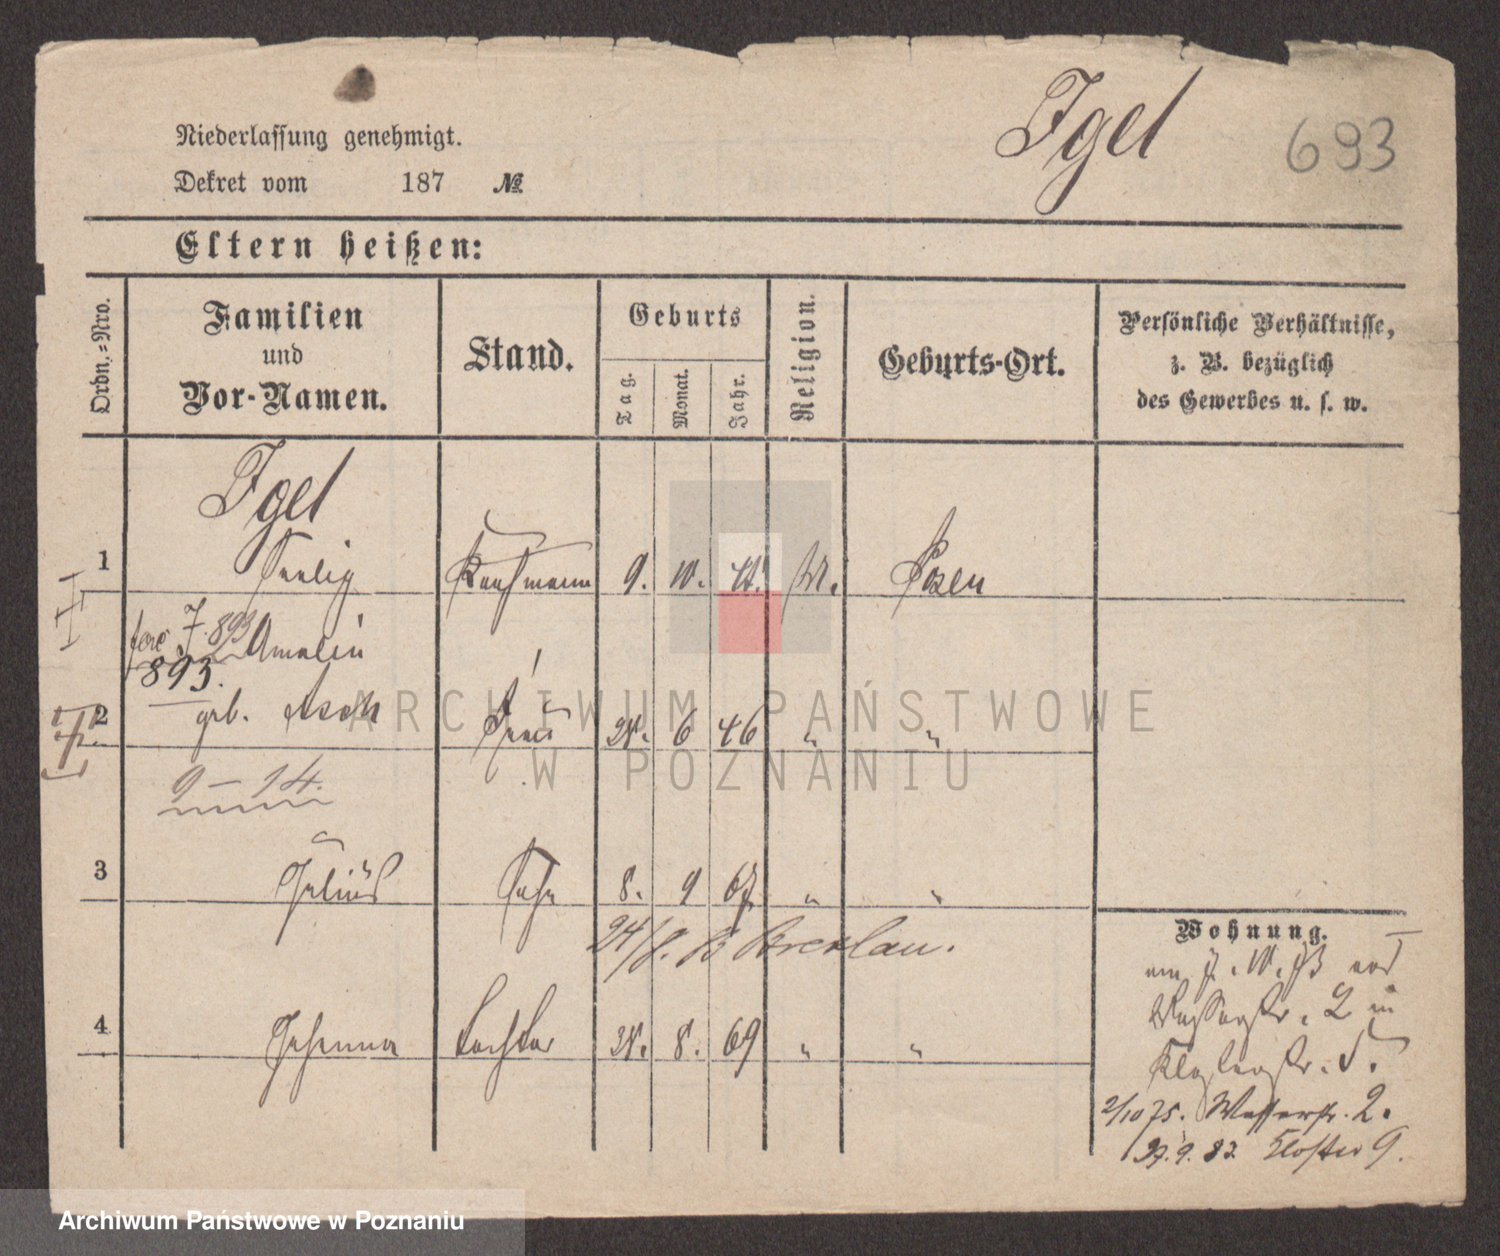 Igel
693
Niederlassung genehmigt.
Dekret vom 187 №
Eltern heißen:
Ordn.-Nro.
Familien
und
Vor-Namen.
Stand.
Geburts
Tag.
Monat.
Jahr.
Religion.
Geburts-Ort.
Persönliche Verhältnisse,
z. B. bezüglich
des Gewerbes u. s. w.
Igel
1 Seelig Kaufmann 9. 10. M. Posen
7. 893 Amalie
893.
2 geb. Asch Frau 6 46 " "
9 – 14.
3 Julius Sohn 8. 9 67 " "
24/8. Breslau.
4 Johanna Tochter 8. 69 " "
Wohnung.
Wasserstr. 2 in
Klosterstr. 5.
2/10 75. Wasserstr. 2.
9. 83. Kloster 9.
ARCHIWUM PAŃSTWOWE
W POZNANIU
Archiwum Państwowe w Poznaniu